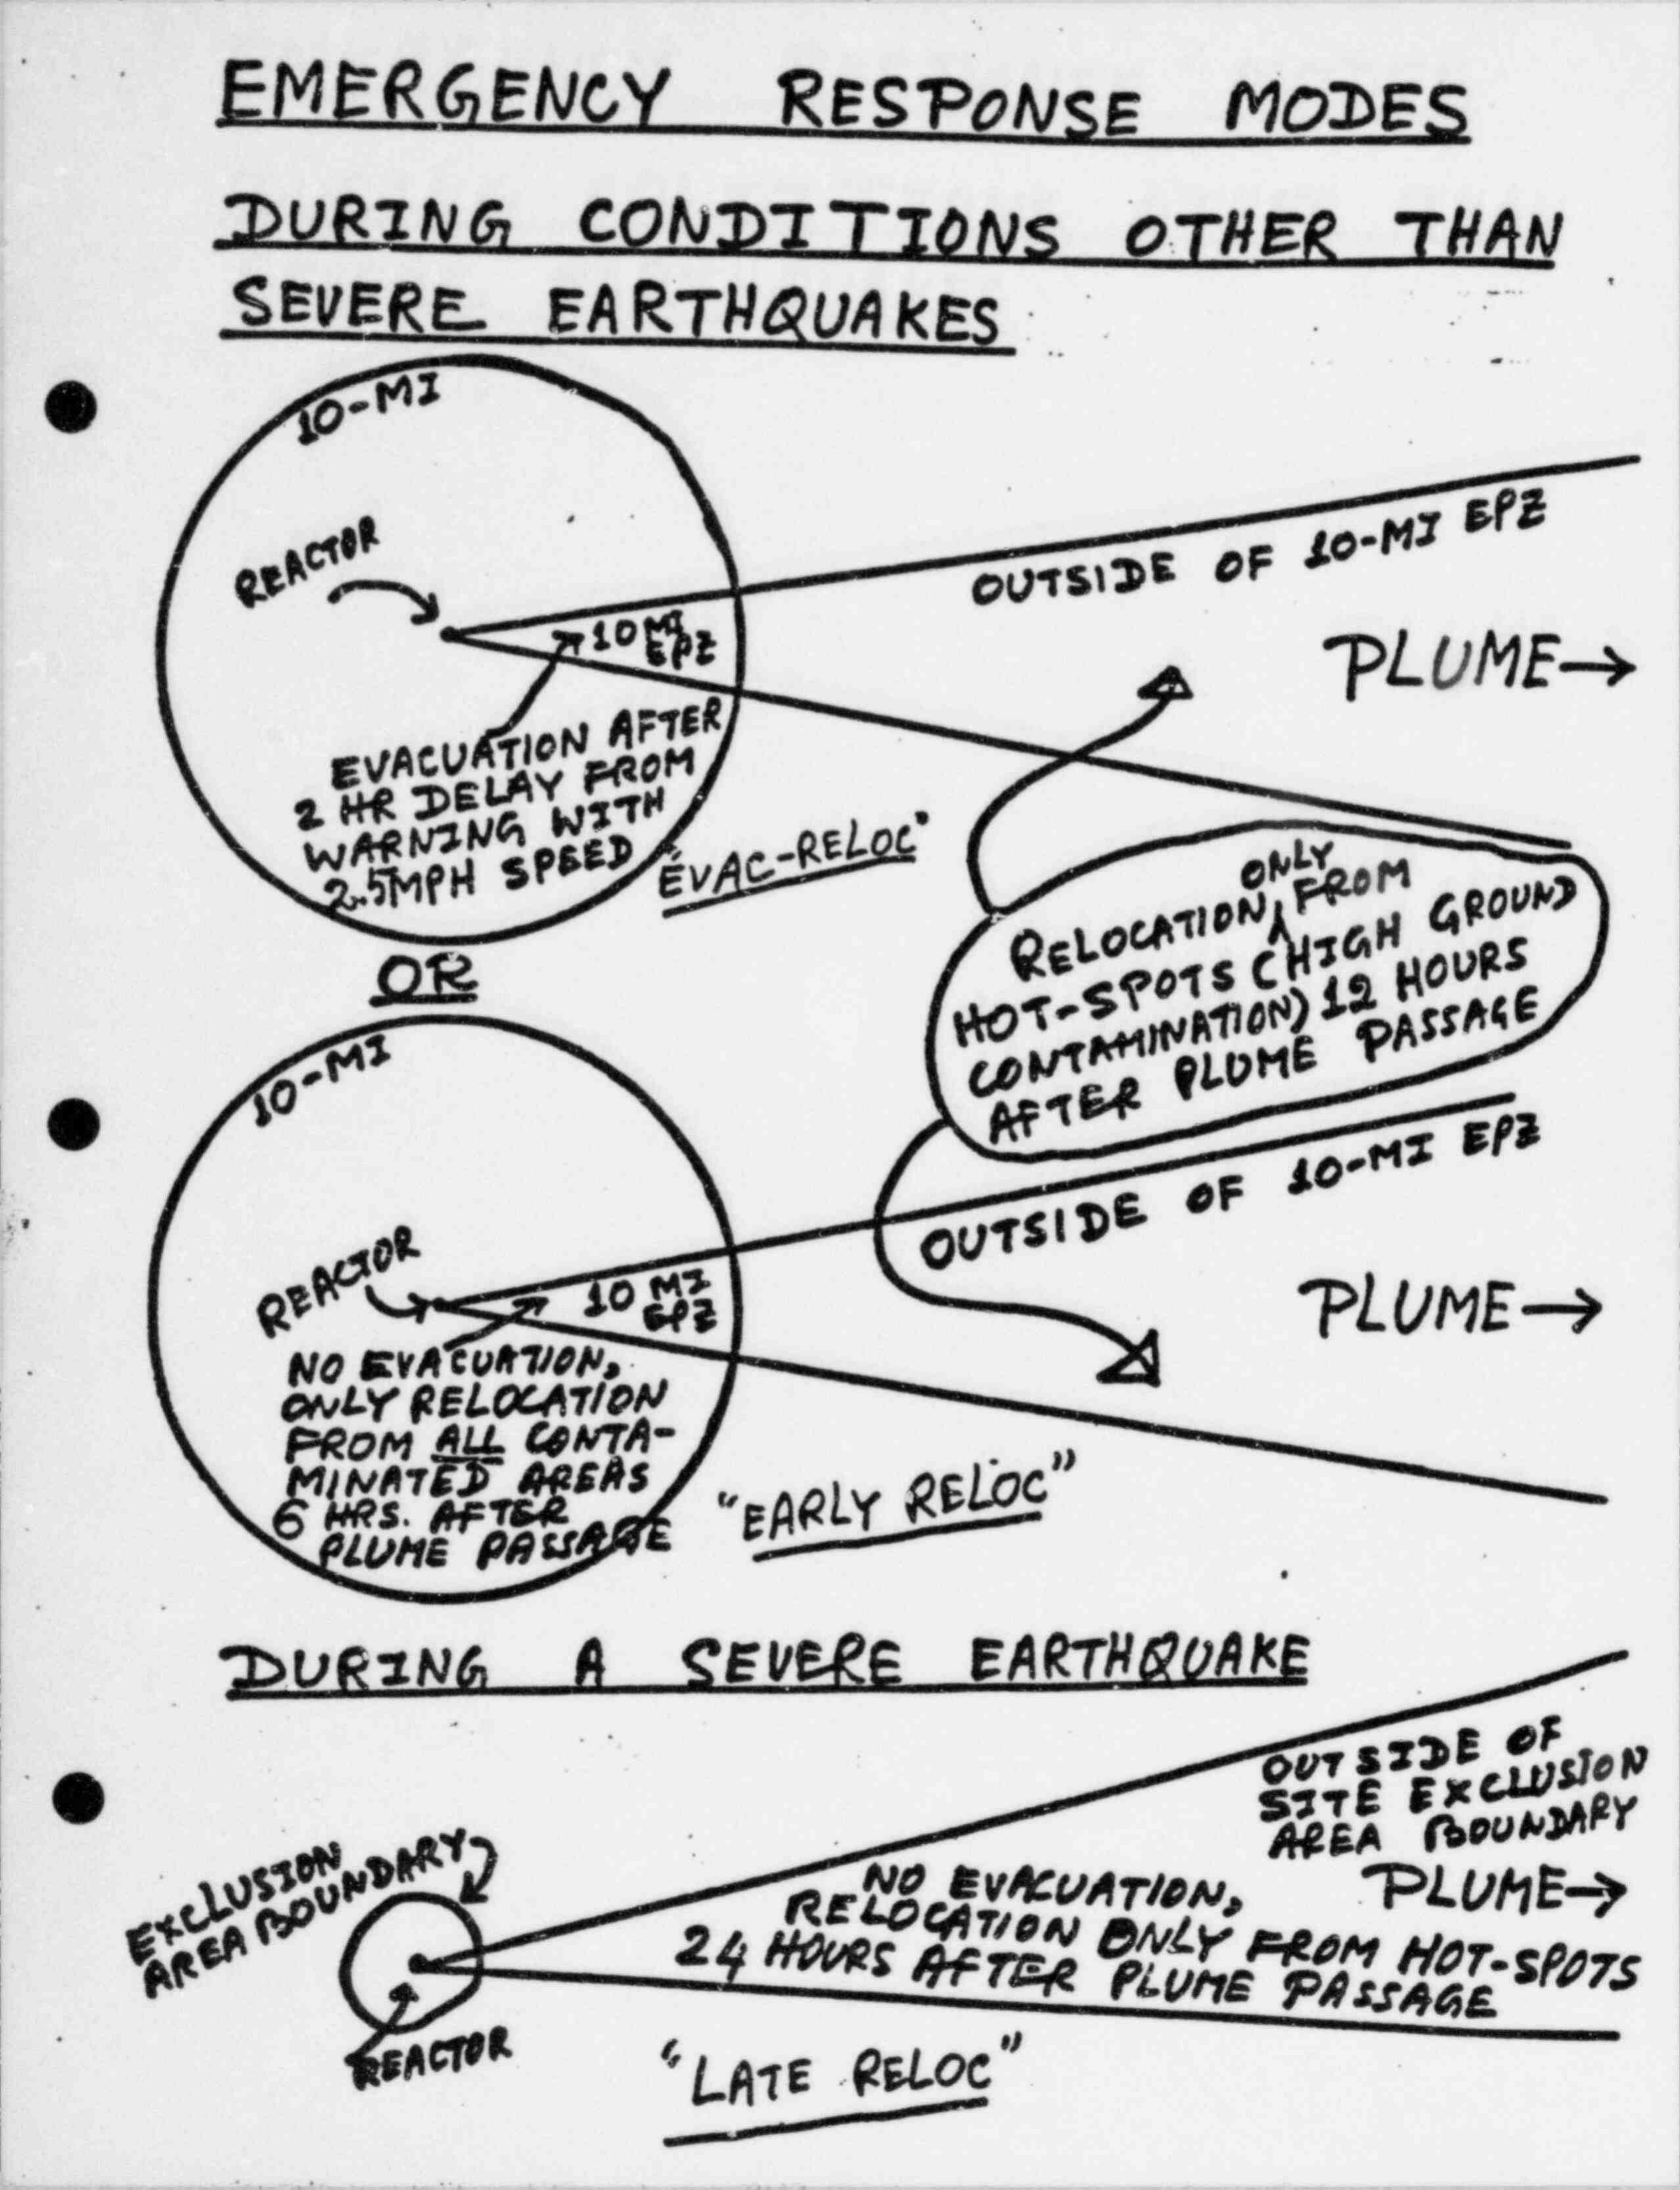 EMERGENCY RESPONSE MODES
DURING CONDITIONS OTHER THAN
SEVERE EARTHQUAKES
10-MI
REACTOR
10 MI
EPZ
OUTSIDE OF 10-MI EPZ
PLUME→
EVACUATION AFTER
2 HR DELAY FROM
WARNING WITH
2.5MPH SPEED
"EVAC-RELOC"
ONLY
RELOCATION FROM
HOT-SPOTS (HIGH GROUND
CONTAMINATION) 12 HOURS
AFTER PLUME PASSAGE
OR
10-MI
REACTOR
10 MI
EPZ
OUTSIDE OF 10-MI EPZ
PLUME→
NO EVACUATION,
ONLY RELOCATION
FROM ALL CONTA-
MINATED AREAS
6 HRS. AFTER
PLUME PASSAGE
"EARLY RELOC"
DURING A SEVERE EARTHQUAKE
OUTSIDE OF
SITE EXCLUSION
AREA BOUNDARY
PLUME→
EXCLUSION
AREA BOUNDARY
NO EVACUATION,
RELOCATION ONLY FROM HOT-SPOTS
24 HOURS AFTER PLUME PASSAGE
REACTOR
"LATE RELOC"